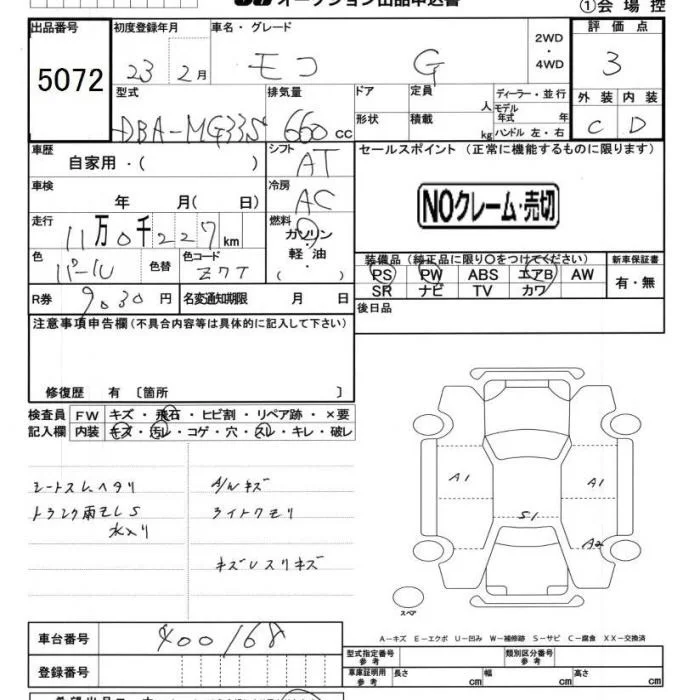 オークション出品申込書
①会場控
出品番号 初度登録年月 車名・グレード 2WD・4WD 評価点
5072 23 2月 モコ G 3
型式 排気量 ドア 定員 人 ディーラー・並行 外装 内装
DBA-MG33S 660 cc 形状 積載 kg モデル年式 年 ハンドル 左・右 C D
車歴 自家用・( ) シフト AT セールスポイント(正常に機能するものに限ります)
車検 年 月( 日) 冷房 AC
NOクレーム・売切
走行 11万0千227km 燃料 ガソリン・軽油・( )
色 パール 色替 色コード Z7T
装備品(純正品に限り○をつけてください) 新車保証書
PS PW ABS エアB AW 有・無
SR ナビ TV カワ
R券 9030円 名変通知期限 月 日 後日品
注意事項申告欄(不具合内容等は具体的に記入して下さい)
修復歴 有 〔箇所 〕
検査員 FW キズ・飛石・ヒビ割・リペア跡・×要
記入欄 内装 キズ・汚レ・コゲ・穴・スレ・キレ・破レ
シートスレ ヘタリ A/Wキズ
トランク雨モレS ライトクモリ
水入り
キズ スリキズ
A1 A1
S1
A2
スペア
A-キズ E-エクボ U-凹み W-補修跡 S-サビ C-腐食 XX-交換済
車台番号 400168
型式指定番号 参考 類別区分番号 参考
登録番号 車庫証明用 参考 長さ cm 幅 cm 高さ cm